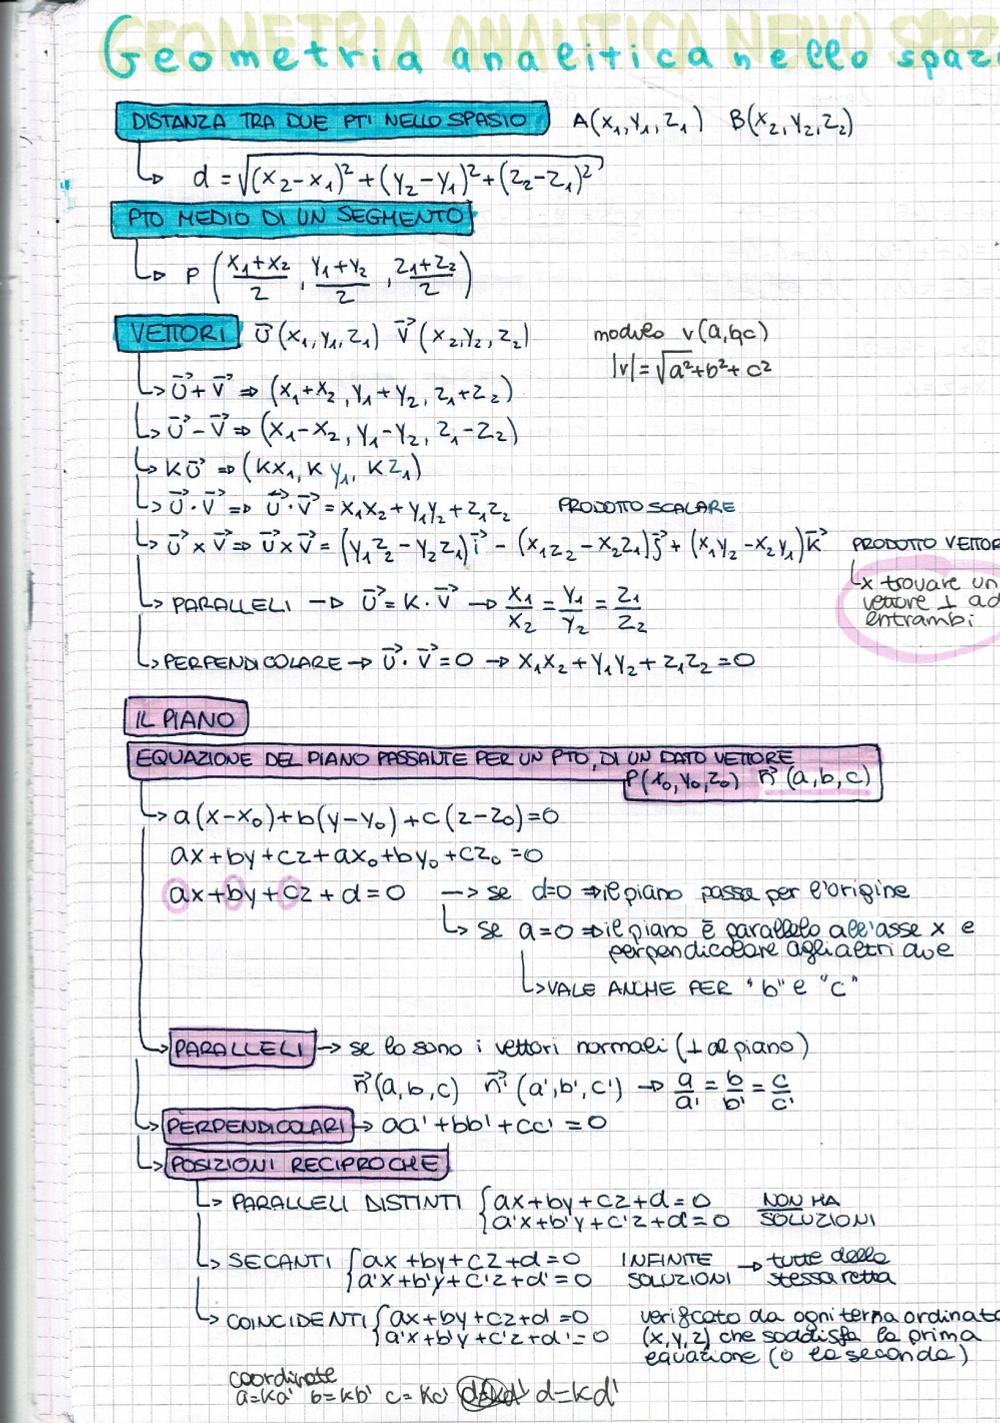 Geometria analitica nello spazi
DISTANZA TRA DUE PTI NELLO SPASIO A(x₁,y₁,z₁) B(x₂,y₂,z₂)
d = √(x₂-x₁)²+(y₂-y₁)²+(z₂-z₁)²
PTO MEDIO DI UN SEGMENTO
P (x₁+x₂/2, y₁+y₂/2, z₁+z₂/2)
VETTORI u⃗(x₁,y₁,z₁) v⃗(x₂,y₂,z₂) modulo v(a,b,c)
|v|=√a²+b²+c²
↳ u⃗+v⃗ ⇒ (x₁+x₂, y₁+y₂, z₁+z₂)
↳ u⃗-v⃗ ⇒ (x₁-x₂, y₁-y₂, z₁-z₂)
↳ Ku⃗ ⇒ (Kx₁, Ky₁, Kz₁)
↳ u⃗·v⃗ ⇒ u⃗·v⃗ = x₁x₂+y₁y₂+z₁z₂ PRODOTTO SCALARE
↳ u⃗×v⃗ ⇒ u⃗×v⃗ = (y₁z₂-y₂z₁)i⃗ - (x₁z₂-x₂z₁)j⃗ + (x₁y₂-x₂y₁)k⃗ PRODOTTO VETTOR
↳ x trovare un
vettore ⊥ ad
entrambi
↳ PARALLELI → u⃗=K·v⃗ → x₁/x₂ = y₁/y₂ = z₁/z₂
↳ PERPENDICOLARE → u⃗·v⃗=0 → x₁x₂+y₁y₂+z₁z₂=0
IL PIANO
EQUAZIONE DEL PIANO PASSANTE PER UN PTO, DI UN DATO VETTORE
P(x₀,y₀,z₀) n⃗(a,b,c)
↳ a(x-x₀)+b(y-y₀)+c(z-z₀)=0
ax+by+cz+ax₀+by₀+cz₀=0
ax+by+cz+d=0 → se d=0 ⇒ il piano passa per l'origine
↳ se a=0 ⇒ il piano è parallelo all'asse x e
perpendicolare agli altri due
↳ VALE ANCHE PER "b" e "c"
↳ PARALLELI → se lo sono i vettori normali (⊥ al piano)
n⃗(a,b,c) n⃗'(a',b',c') → a/a' = b/b' = c/c'
↳ PERPENDICOLARI → aa'+bb'+cc'=0
↳ POSIZIONI RECIPROCHE
↳ PARALLELI DISTINTI { ax+by+cz+d=0 NON HA
a'x+b'y+c'z+d'=0 SOLUZIONI
↳ SECANTI { ax+by+cz+d=0 INFINITE → tutte della
a'x+b'y+c'z+d'=0 SOLUZIONI stessa retta
↳ COINCIDENTI { ax+by+cz+d=0 verificato da ogni terna ordinata
a'x+b'y+c'z+d'=0 (x,y,z) che soddisfa la prima
equazione (o la seconda)
coordinate
a=ka' b=kb' c=kc' d=kd'